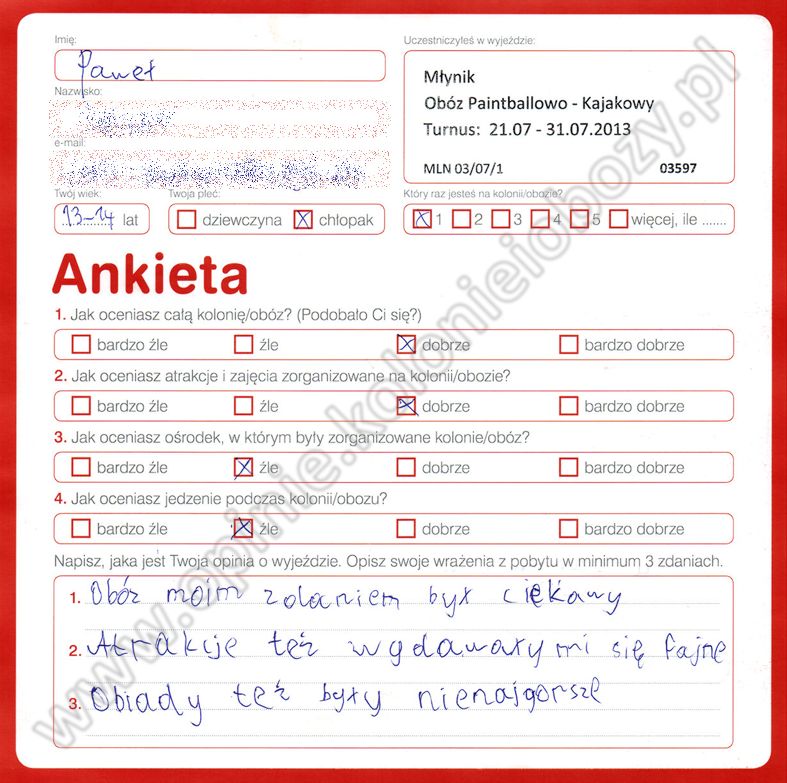 Imię:
Paweł
Nazwisko:
e-mail:
Twój wiek:
13-14 lat
Twoja płeć:
dziewczyna chłopak
Uczestniczyłeś w wyjeździe:
Młynik
Obóz Paintballowo - Kajakowy
Turnus: 21.07 - 31.07.2013
MLN 03/07/1 03597
Który raz jesteś na kolonii/obozie?
1 2 3 4 5 więcej, ile .......
Ankieta
1. Jak oceniasz całą kolonię/obóz? (Podobało Ci się?)
bardzo źle źle dobrze bardzo dobrze
2. Jak oceniasz atrakcje i zajęcia zorganizowane na kolonii/obozie?
bardzo źle źle dobrze bardzo dobrze
3. Jak oceniasz ośrodek, w którym były zorganizowane kolonie/obóz?
bardzo źle źle dobrze bardzo dobrze
4. Jak oceniasz jedzenie podczas kolonii/obozu?
bardzo źle źle dobrze bardzo dobrze
Napisz, jaka jest Twoja opinia o wyjeździe. Opisz swoje wrażenia z pobytu w minimum 3 zdaniach.
1. Obóz moim zdaniem był ciekawy
2. Atrakcje też wydawały mi się fajne
3. Obiady też były nienajgorsze
www.opinie.kolonieiobozy.pl